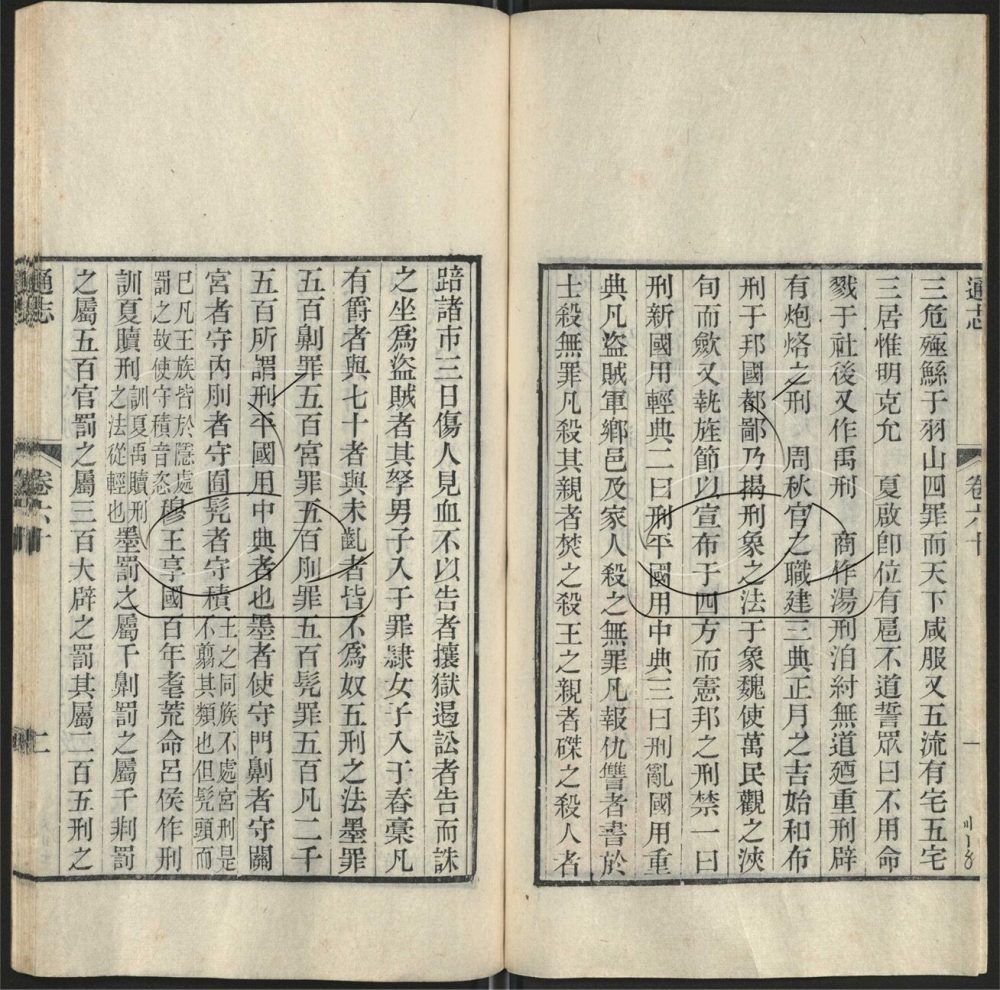 通志
卷六十
一
三危殛鯀于羽山四罪而天下咸服又五流有宅五宅
三居惟明克允　夏啟卽位有扈不道誓眾曰不用命
戮于社後又作禹刑　商作湯刑洎紂無道廼重刑辟
有炮烙之刑　周秋官之職建三典正月之吉始和布
刑于邦國都鄙乃揭刑象之法于象魏使萬民觀之浹
旬而斂又執旌節以宣布于四方而憲邦之刑禁一曰
刑新國用輕典二曰刑平國用中典三曰刑亂國用重
典凡盜賊軍鄉邑及家人殺之無罪凡報仇讐者書於
士殺無罪凡殺其親者焚之殺王之親者磔之殺人者
踣諸市三日傷人見血不以告者攘獄遏訟者告而誅
之坐爲盜賊者其孥男子入于罪隸女子入于舂槀凡
有爵者與七十者與未齔者皆不爲奴五刑之法墨罪
五百劓罪五百宮罪五百刖罪五百髡罪五百凡二千
五百所謂刑平國用中典者也墨者使守門劓者守關
宮者守內刖者守囿髡者守積王之同族不處宮刑是不翦其類也但髡頭而
已凡王族皆於隱處罰之故使守積音恣穆王享國百年耄荒命呂侯作刑
訓夏贖刑訓夏禹贖刑之法從輕也墨罰之屬千劓罰之屬千剕罰
之屬五百宫罰之屬三百大辟之罰其屬二百五刑之
通志
卷六十
二